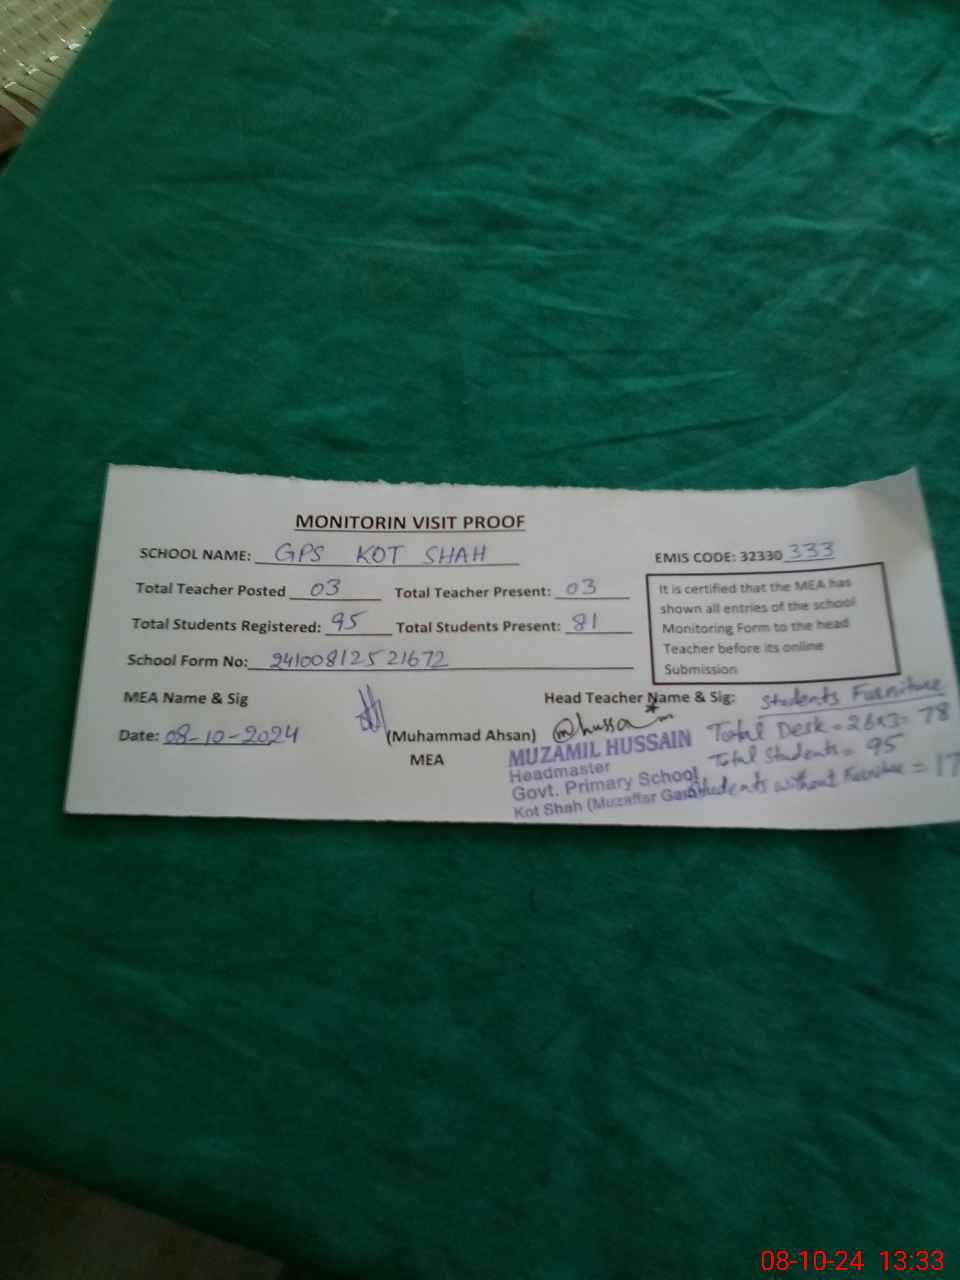 MONITORIN VISIT PROOF
SCHOOL NAME: GPS KOT SHAH
EMIS CODE: 32330 333
Total Teacher Posted 03 Total Teacher Present: 03
Total Students Registered: 95 Total Students Present: 81
School Form No: 24100812521672
It is certified that the MEA has
shown all entries of the school
Monitoring Form to the head
Teacher before its online
Submission
MEA Name & Sig
Head Teacher Name & Sig:
Students Furniture
Date: 08-10-2024
(Muhammad Ahsan)
MEA
Total Desk = 26x3 = 78
Total Students = 95
Students without Furniture = 17
MUZAMIL HUSSAIN
Headmaster
Govt. Primary School
Kot Shah (Muzaffar
08-10-24 13:33